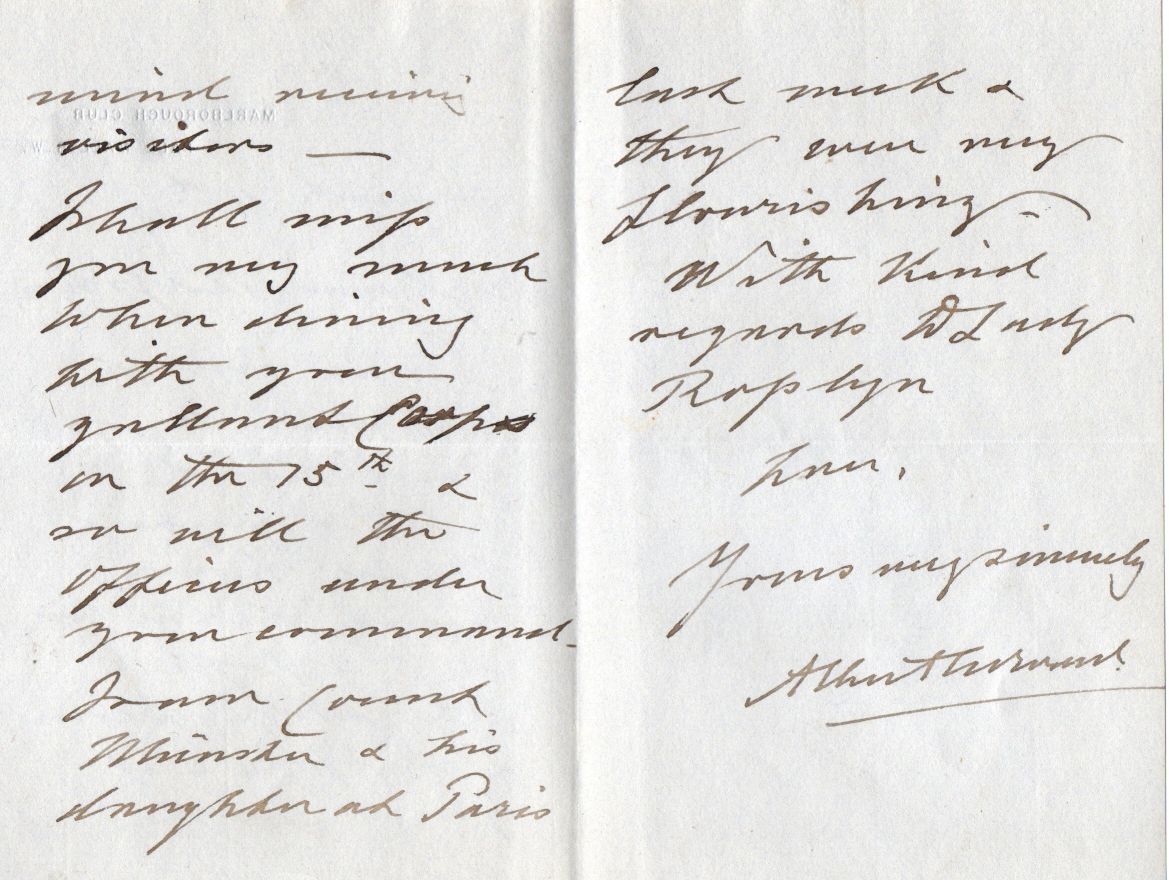 mind receiving
MARLBOROUGH CLUB
visitors —
I shall miss
you very much
when dining
with your
gallant Corps
on the 15th &
so will the
Officers under
your command.
I saw Count
Münster & his
daughter at Paris
last week &
they were very
flourishing -
With kind
regards to Lady
Rosslyn
I am,
Yours very sincerely
Albert Edward.